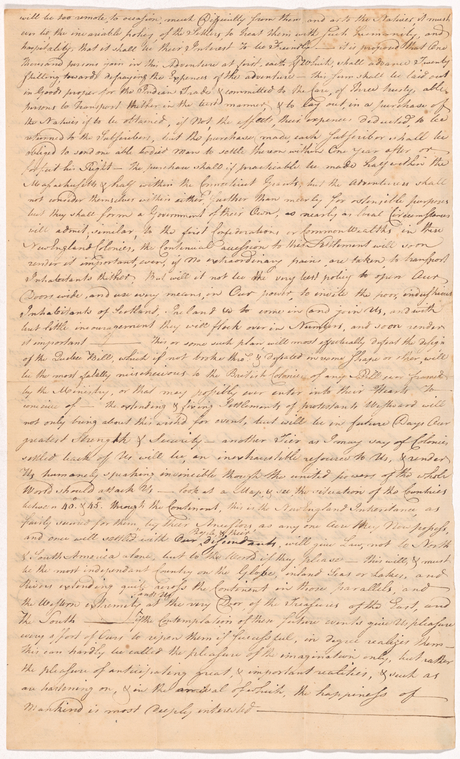 will be too remote, to occasion, much Difficulty from them and as to the Natives, it must
ever be, the invariable policy, of the Settlers to treat them with such humanity, and
hospitality, that it shall be their Interest to be Friends — it is proposed that One
Thousand persons join in the Adventure at first, each of Which, shall advance Twenty
Shilling towards defraying the Expences of the adventure — the sum shall be laid out
in Goods proper for the Indian Trade & committed to the Care, of Three trusty, able
persons to Transport thither in the best manner, & to lay out, in a purchase of
the Natives if to be obtained, if Not the effects, their expence Deducted, to be
returned to the Subscribers, but the purchase made, each Subscriber shall be
obliged to send one able bodied Man to settle thereon within One year after or
forfeit his Right — The purchase shall if practicable be made half within the
Massachusetts & half within the Connecticut Grants, but the adventurers shall
not consider themselves within either, further than merely for ostensible purposes
but they shall form a Government of their Own, as nearly, as local Circumstances
will admit, similar, to the first Confederations, or Common Wealths, in these
New England Colonies, the Continual accession to that Settlement will soon
render it important, even if no extraordinary pains are taken to transport
Inhabitants thither, But will it not be the very best policy to open Our
Doors wide, and use every means, in Our power, to invite the poor, industrious
Inhabitants of Scotland, Ireland &c to come in and join Us, and with
but little encouragement they will flock over in Numbers, and soon render
it important — This or some such plan, will most effectually defeat the design
of the Quebec Bill, which if not broke thro', & defeated in some shape or other, will
be the most fatally mischievous to the British Colonies of any Bill ever framed
by the Ministry, or that may possibly ever enter into their Hearts to
concieve of — the extending & fixing Settlements of protestants Westward will
not only bring about this wished for event, but will be in future Days Our
greatest Strength & Security — another Tier, as I may say of Colonies
settled back of Us will be, an inexhaustable resource to Us, & render
Us humanely speaking invincible though the united powers of the whole
World should attack Us — look at a Map & see the situation of the Countries
between 40 & 45. through the Continent, this is the New England Inheritance, as
fairly secured for them, by their Ancestors, as any one thing they Now possess,
and once well settled with Our descendants, will give Law, not to North
& South America alone, but to the World if they please — this will, & must
be the most independant Country on the Globe, inland Seas or Lakes, and
rivers extending quite across the Continent in those parallels, and
the Western extremity at the very Door of the Treasures of the East, and
the South — The Contemplation of these future events give Us pleasure
every effort of Ours to ripen them if successful, in degree realizes them —
This can hardly be called the pleasure of the imagination only, but rather
the pleasure of anticipating great, & important realities, & such as
are hastening on, & in the arrival of which, the happiness of
Mankind is most deeply interested —